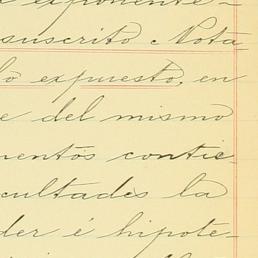 exponente-
suscrito Nota
lo expuesto, en
e del mismo
mentos contie
cultades la
der é hipote-